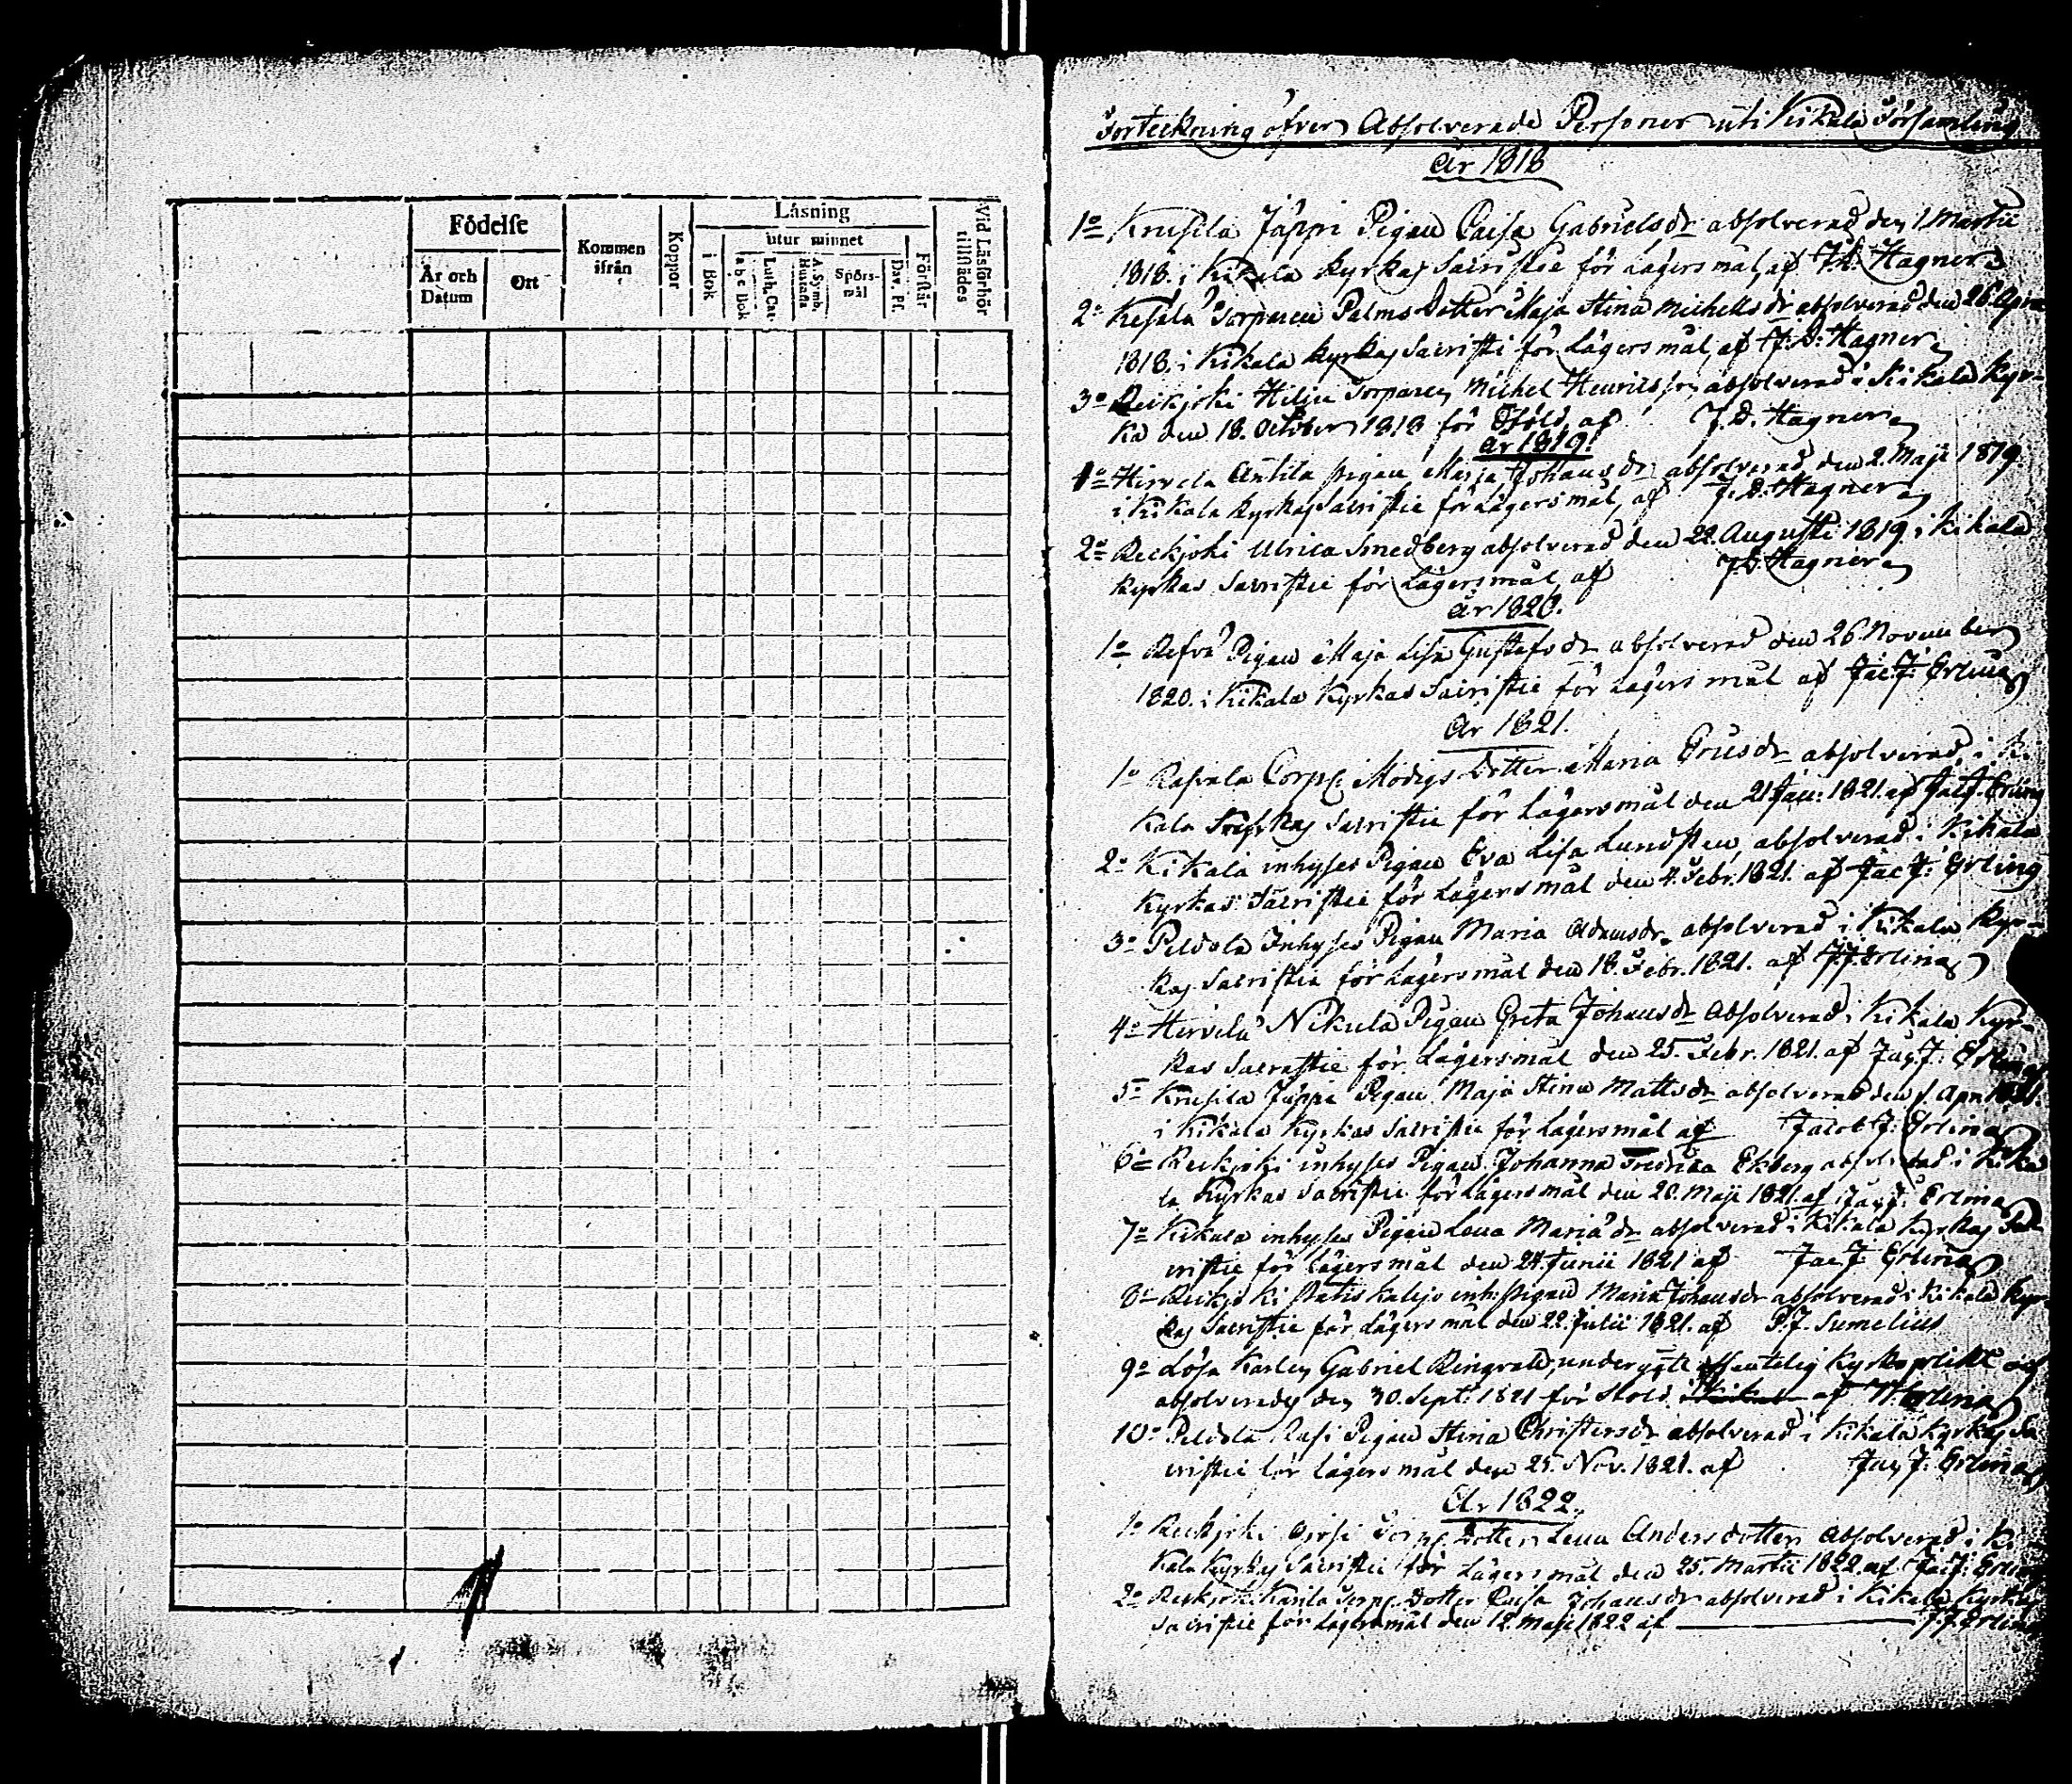 Födelse
Kommen ifrån
Koppor
Läsning
Vid Läsförhör tillstädes
År och Datum
Ort
i Bok
utur minnet
a b c Bok
Luth. Cat.
A. Symb. Hustafla
Spörs-mål
Dav. Ps.
Förstår
Förteckning öfver Absolverade Personer uti Kikala Församling
År 1818
1o Krusila Jäppi Pigan Caisa Gabrielsdr absolverad den 1 Martii
1818. i Kikala Kyrkas Sacristie för Lägersmål, af J.D. Hagner
2o Kesälä Torparen Palms Dotter Maja Stina Michelsdr absolverad den 26. April
1818. i Kikala Kyrkas Sacristi för Lägersmål af J.D. Hagner
3o Reikjoki Torparen Michel Henricsson absolverad i Kikala Kyr-
ka den 18. October 1818 för af J.D. Hagner
År 1819.
1o Hirvela Anttila pigan Maria Johansdr absolverad den 2. Maji 1819
i Kikala Kyrkas Sacristie för Lägersmål, af J.D. Hagner
2o Reikjoki Ulrica Smedberg absolverad den 22. Augusti 1819. i Kikala
Kyrkas Sacristie för Lägersmål, af J.D. Hagner
År 1820.
1o Pigan Maja Lisa Gustafsdr absolverad den 26 November
1820. i Kikala Kyrkas Sacristie för Lägersmål af Jac. J. Erling
År 1821.
1o Corp. Modigs Dotter Maria absolverad i Ki-
kala Kyrkas Sacristie för Lägersmål den 21 Jan: 1821. af Jac J. Erling
2o Kikala inhyses Pigan Eva Lisa Lundsten absolverad i Kikala
Kyrkas Sacristie för Lägersmål den 4. Febr. 1821. af Jac J. Erling
3o Peldola Inhyses Pigan Maria Adamsdr absolverad i Kikala Kyr-
kas Sacristie för Lägersmål den 18. Febr. 1821. af J.J. Erling
4o Hirvela Nikula Pigan Greta Johansdr Absolverad i Kikala Kyr-
kas Sacristie för Lägersmål den 25. Febr. 1821. af Jac J. Erling
5o Krusila Jäppi Pigan Maja Stina Mattsdr absolverad den 1. April 1821.
i Kikala Kyrkas Sacristie för Lägersmål af Jacob J. Erling
6o Reikjoki inhyses Pigan Johanna Fredrica Ekberg absolverad i Kika
la Kyrkas Sacristie för Lägersmål den 20. Maji 1821. af Jac J. Erling
7o Kikala inhyses Pigan Lena Maria dr absolverad i Kikala Kyrkas Sa
cristie för Lägersmål den 24. Junii 1821 af Jac J. Erling
8o Reikjoki inh. Pigan Maria Johansdr absolverad i Kikala Kyr-
kas Sacristie för Lägersmål den 22. Julii 1821. af P.J. Sumelius
9o Lösa Karlen Gabriel Ringvald, undergått offentelig Kyrkoplikt och
absolverades den 30. Sept. 1821 för stöld af J.J. Erling
10o Peldola Pigan Stina Christersdr absolverad i Kikala Kyrkas Sa
cristie för Lägersmål den 25. Nov. 1821. af Jac J. Erling
År 1822.
1o Reikjoki Torp. Dotter Lena Andersdotter Absolverad i Ki
kala Kyrkas Sacristie för Lägersmål den 25. Martii 1822. af Jac J. Erling
2o Reikjoki Torp. Dotter Caisa Johansdr absolverad i Kikala Kyrkas
Sacristie för Lägersmål den 12. Maji 1822 af J.J. Erling